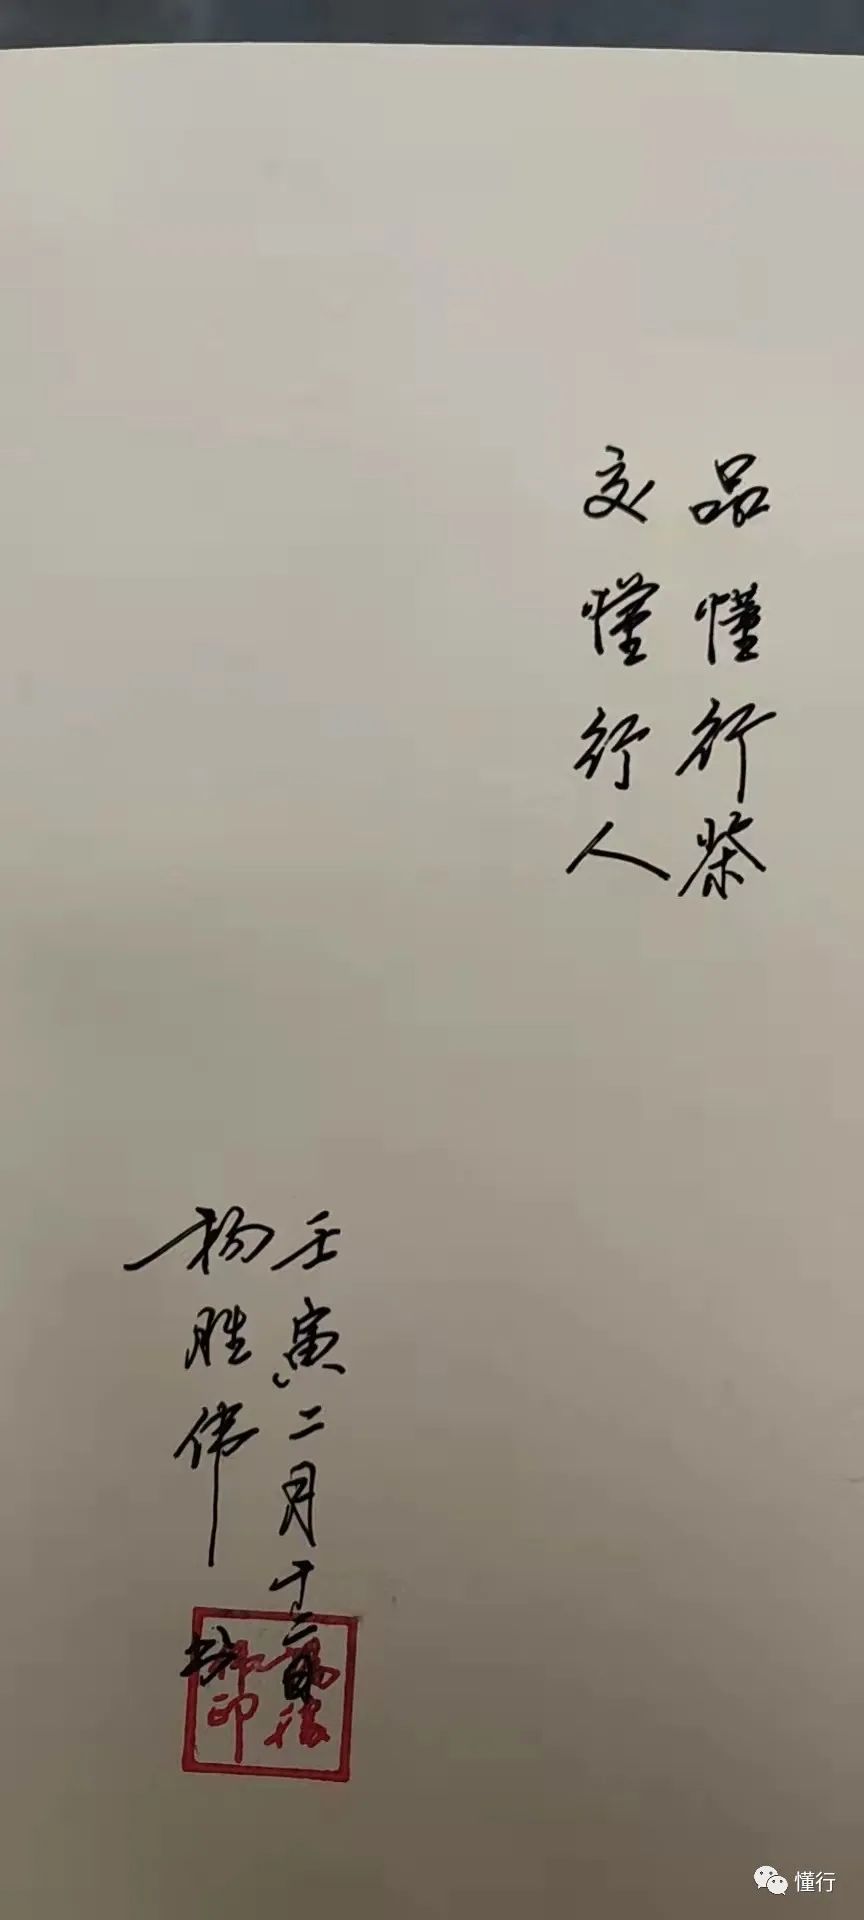 品懂行茶
交懂行人
壬寅二月十二日
杨胜伟
印
懂行